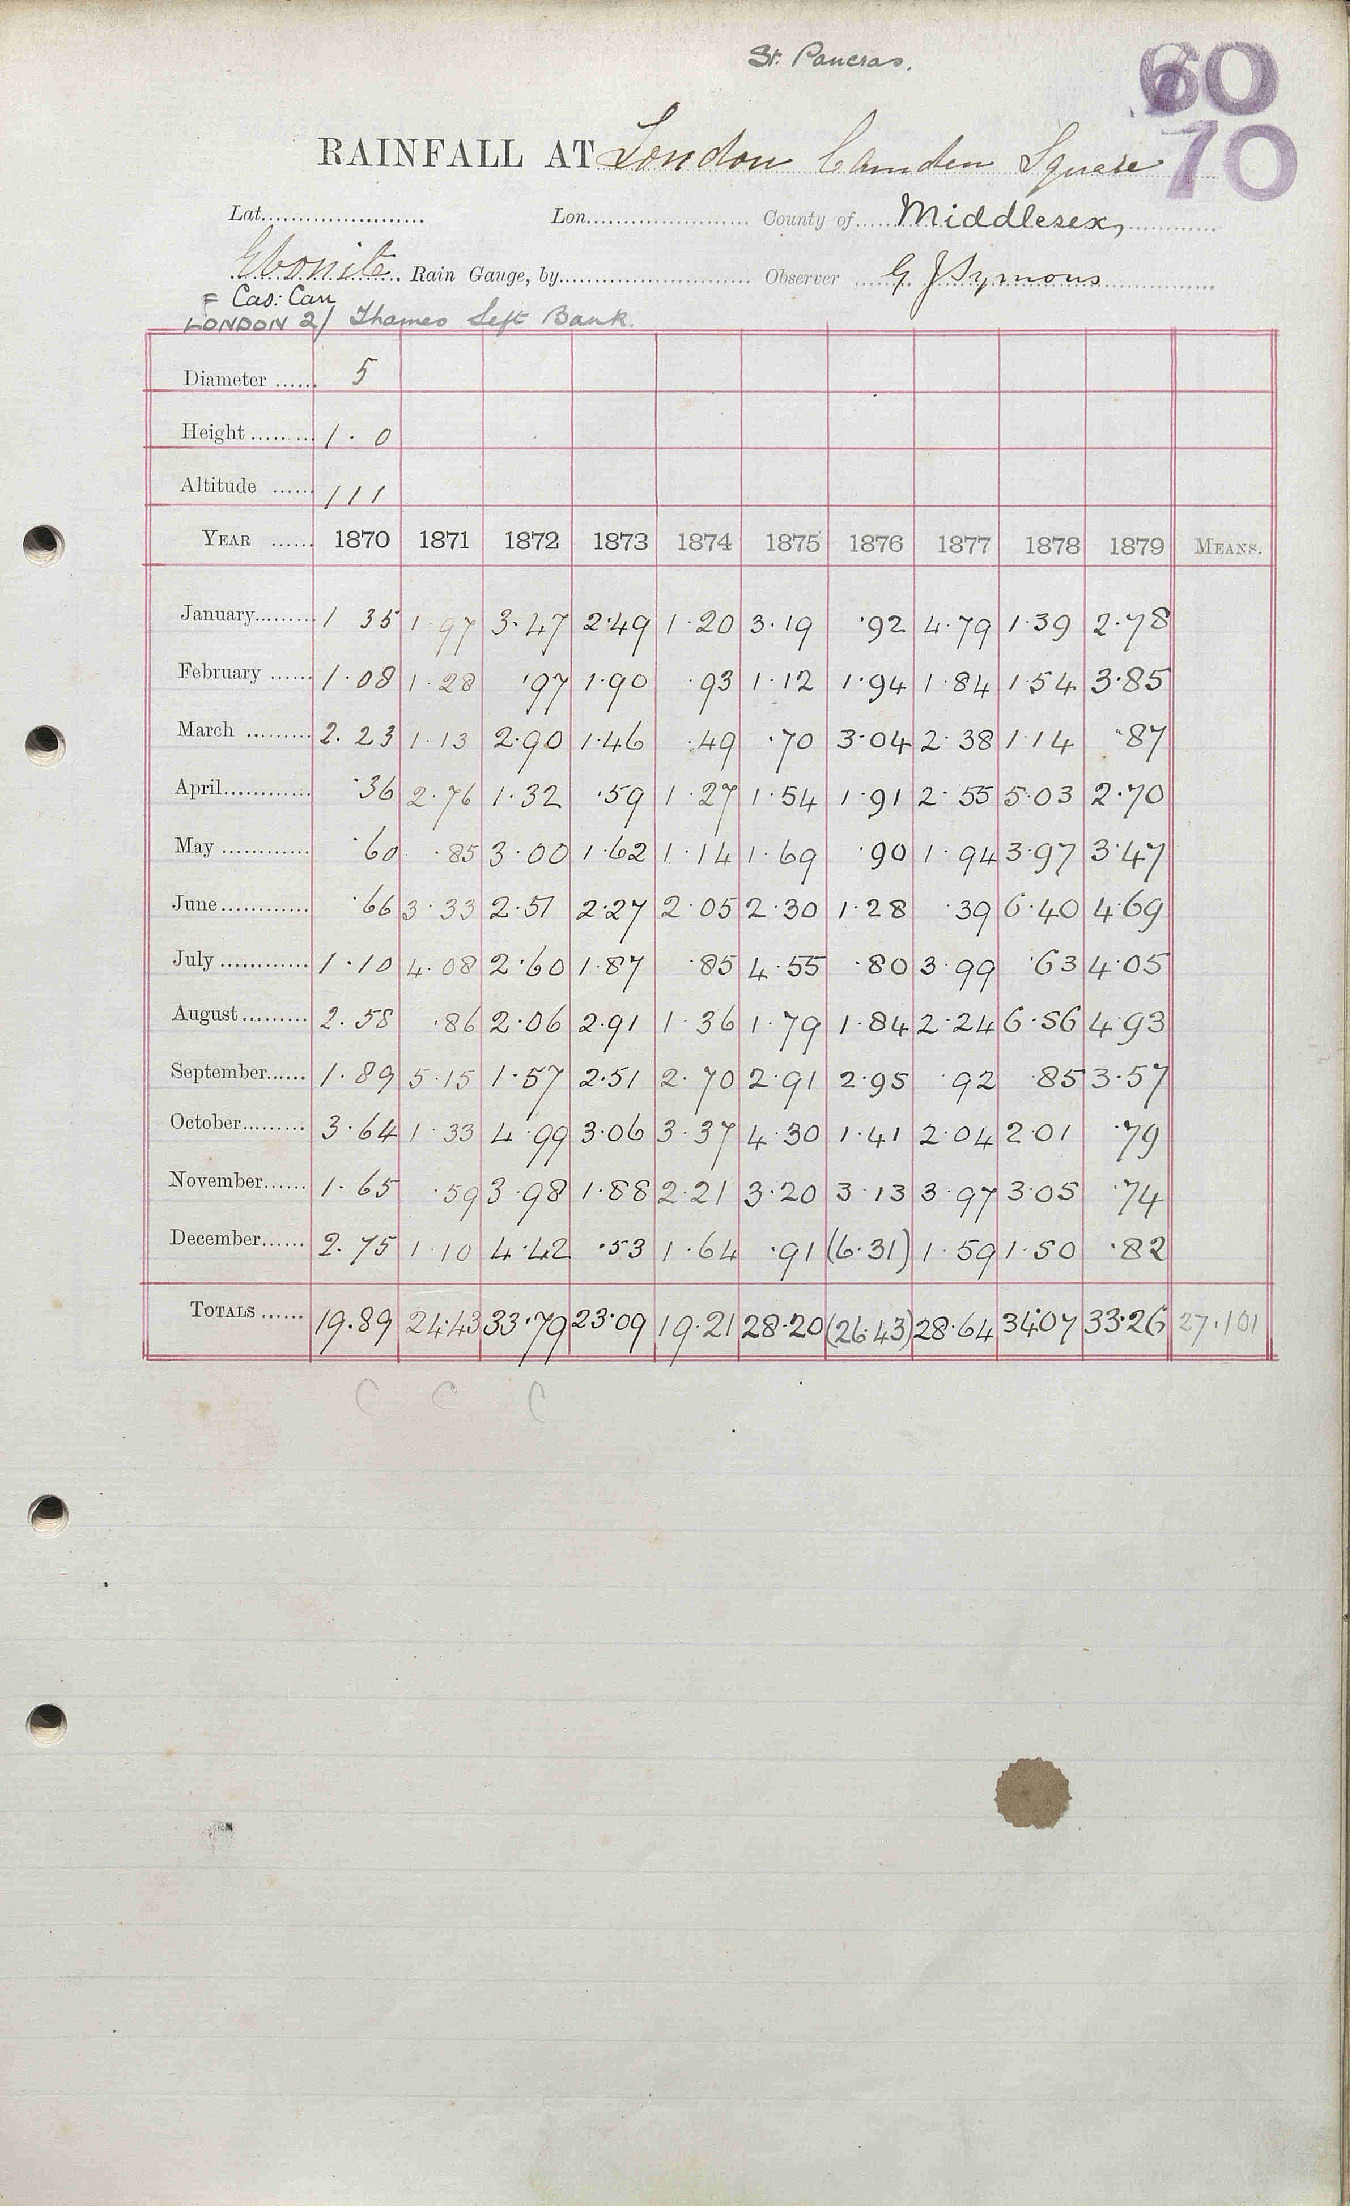 St. Pancras.
60
70
RAINFALL AT London Camden Square
Lat. Lon. County of Middlesex,
Ebonite Rain Gauge, by Observer G J Symons
= Cas: Can
LONDON 2/ Thames Left Bank.
Diameter 5
Height 1.0
Altitude 111
YEAR 1870 1871 1872 1873 1874 1875 1876 1877 1878 1879 MEANS.
January 1 35 1.97 3.47 2.49 1.20 3.19 .92 4.79 1.39 2.78
February 1.08 1.28 .97 1.90 .93 1.12 1.94 1.84 1.54 3.85
March 2.23 1.13 2.90 1.46 .49 .70 3.04 2.38 1.14 .87
April .36 2.76 1.32 .59 1.27 1.54 1.91 2.55 5.03 2.70
May .60 .85 3.00 1.62 1.14 1.69 .90 1.94 3.97 3.47
June .66 3.33 2.51 2.27 2.05 2.30 1.28 .39 6.40 4.69
July 1.10 4.08 2.60 1.87 .85 4.55 .80 3.99 .63 4.05
August 2.58 .86 2.06 2.91 1.36 1.79 1.84 2.24 6.56 4.93
September 1.89 5.15 1.57 2.51 2.70 2.91 2.95 .92 .85 3.57
October 3.64 1.33 4.99 3.06 3.37 4.30 1.41 2.04 2.01 .79
November 1.65 .59 3.98 1.88 2.21 3.20 3.13 3.97 3.05 .74
December 2.75 1.10 4.42 .53 1.64 .91 (6.31) 1.59 1.50 .82
TOTALS 19.89 24.43 33.79 23.09 19.21 28.20 (26.43) 28.64 34.07 33.26 27.101
C C C